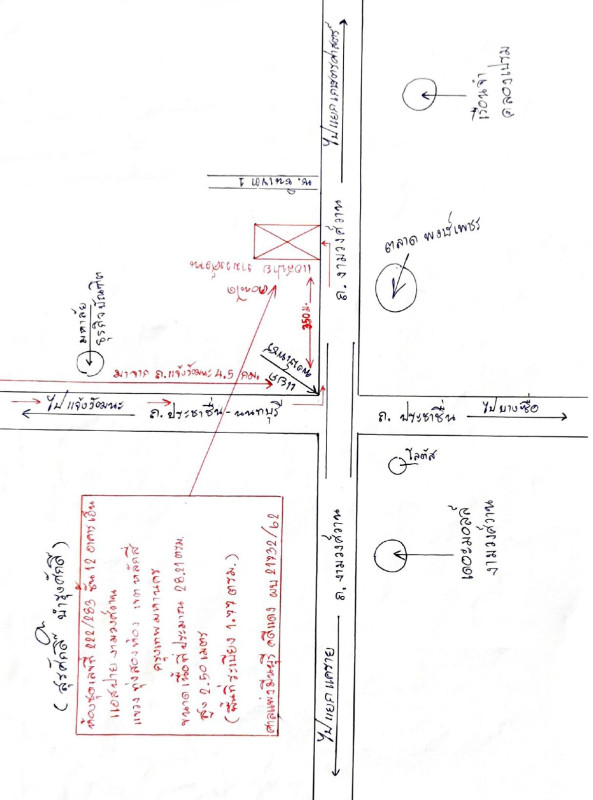 ไปแยกเกษตรศาสตร์
เรือนจำ
คลองเปรม
ซ. ชินเขต 1
ถ. งามวงศ์วาน
ตลาด พงษ์เพชร
แอสปาย งามวงศ์วาน
คอนโด
350 ม.
มหาลัย
ธุรกิจบัณฑิต
มาจาก ถ.แจ้งวัฒนะ 4.5 กม
ไปแจ้งวัฒนะ
ถ. ประชาชื่น-นนทบุรี
ถ. ประชาชื่น
ไปบางซื่อ
โลตัส
เดอะมอลล์
งามวงศ์วาน
ถ. งามวงศ์วาน
ไปแยกแคราย
ห้องชุดเลขที่ 222/283 ชั้น 12 อาคารเอ็น
แอสปาย งามวงศ์วาน
แขวง ทุ่งสองห้อง เขต หลักสี่
กรุงเทพมหานคร
ขนาดเนื้อที่ประมาณ 28.21 ตรม.
สูง 2.50 เมตร
(พื้นที่ระเบียง 1.77 ตรม.)
ศาลแพ่งมีนบุรี คดีแดง ผบ 21732/62
(สุรศักดิ์ บำรุงศักดิ์)